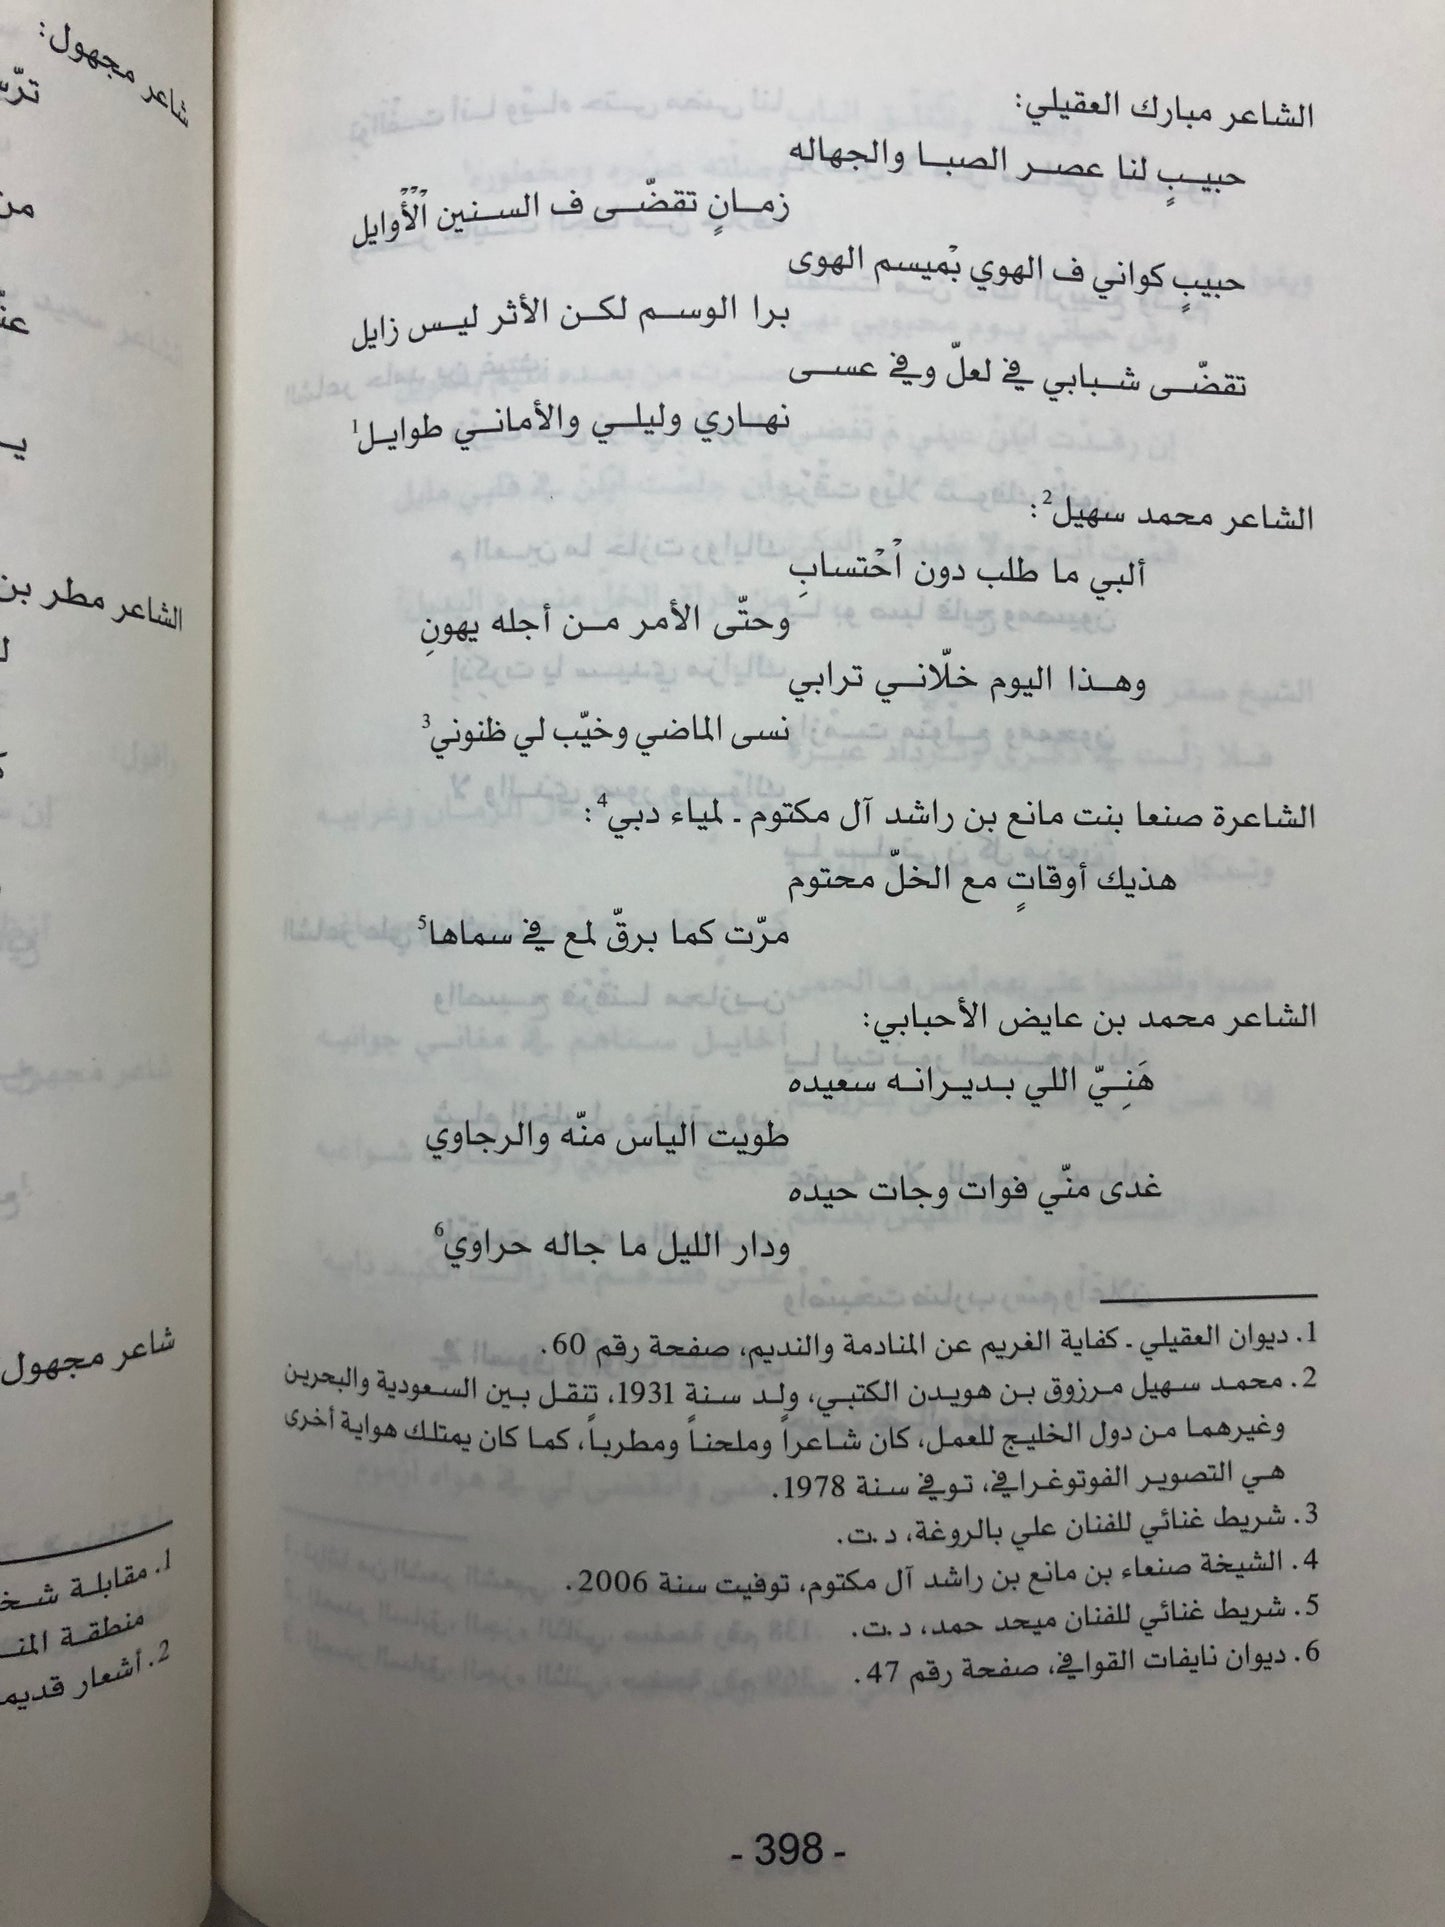 الشاعر مبارك العقيلي:
حبيبٍ لنا عصر الصبا والجهاله
زمانٍ تقضّى ف السنين الأوايل
حبيبٍ كواني ف الهوي بْميسم الهوى
برا الوسم لكن الأثر ليس زايل
تقضّى شبابي في لعلّ وفي عسى
نهاري وليلي والأماني طوايل1
الشاعر محمد سهيل2:
ألبي ما طلب دون اْحْتسابِ
وحتّى الأمر من أجله يهونِ
وهذا اليوم خلّاني ترابي
نسى الماضي وخيّب لي ظنوني3
الشاعرة صنعا بنت مانع بن راشد آل مكتوم ـ لمياء دبي4:
هذيك أوقاتٍ مع الخلّ محتوم
مرّت كما برقّ لمع في سماها5
الشاعر محمد بن عايض الأحبابي:
هَنِيّ اللي بديرانه سعيده
طويت الياس منّه والرجاوي
غدى منّي فوات وجات حيده
ودار الليل ما جاله حراوي6
1. ديوان العقيلي ـ كفاية الغريم عن المنادمة والنديم، صفحة رقم 60.
2. محمد سهيل مرزوق بن هويدن الكتبي، ولد سنة 1931، تنقل بين السعودية والبحرين
وغيرهما من دول الخليج للعمل، كان شاعراً وملحناً ومطرباً، كما كان يمتلك هواية أخرى
هي التصوير الفوتوغرافي، توفي سنة 1978.
3. شريط غنائي للفنان علي بالروغة، د.ت.
4. الشيخة صنعاء بن مانع بن راشد آل مكتوم، توفيت سنة 2006.
5. شريط غنائي للفنان ميحد حمد، د.ت.
6. ديوان نايفات القوافي، صفحة رقم 47.
- 398 -
شاعر مجهول:
الشاعر مطر بن
شاعر مجهول
1. مقابلة
منطقة
2. أشعار